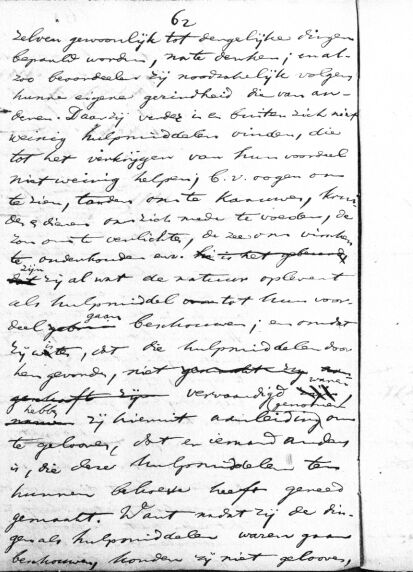 62
zelven gewoonlijk tot dergelijke dingen
bepaald worden, na te denken; en al-
zoo beoordeelen zij noodzakelijk volgens
hunne eigene gezindheid die van an-
deren. Daar zij verder in en buiten zich niet
weinig hulpmiddelen vinden, die
tot het verkrijgen van hun voordeel
niet weinig helpen; b.v. oogen om
te zien, tanden om te kaauwen, krui
den & dieren om zich mede te voeden, de
zon om te verlichten, de zee om visschen
te onderhouden enz. het is het gebeurd
dat zijn zij al wat de natuur oplevert
als hulpmiddel tot hun voor-
deel gaan beschouwen; en omdat
zij weten, dat die hulpmiddelen door
hen gevonden, niet
vervaardigd waren
hebben zij hieruit aanleiding genomen om
te gelooven, dat er iemand anders
is, die deze hulpmiddelen ten
hunnen behoeve heeft gereed
gemaakt. Want nadat zij de din-
gen als hulpmiddelen waren gaan
beschouwen, konden zij niet gelooven,